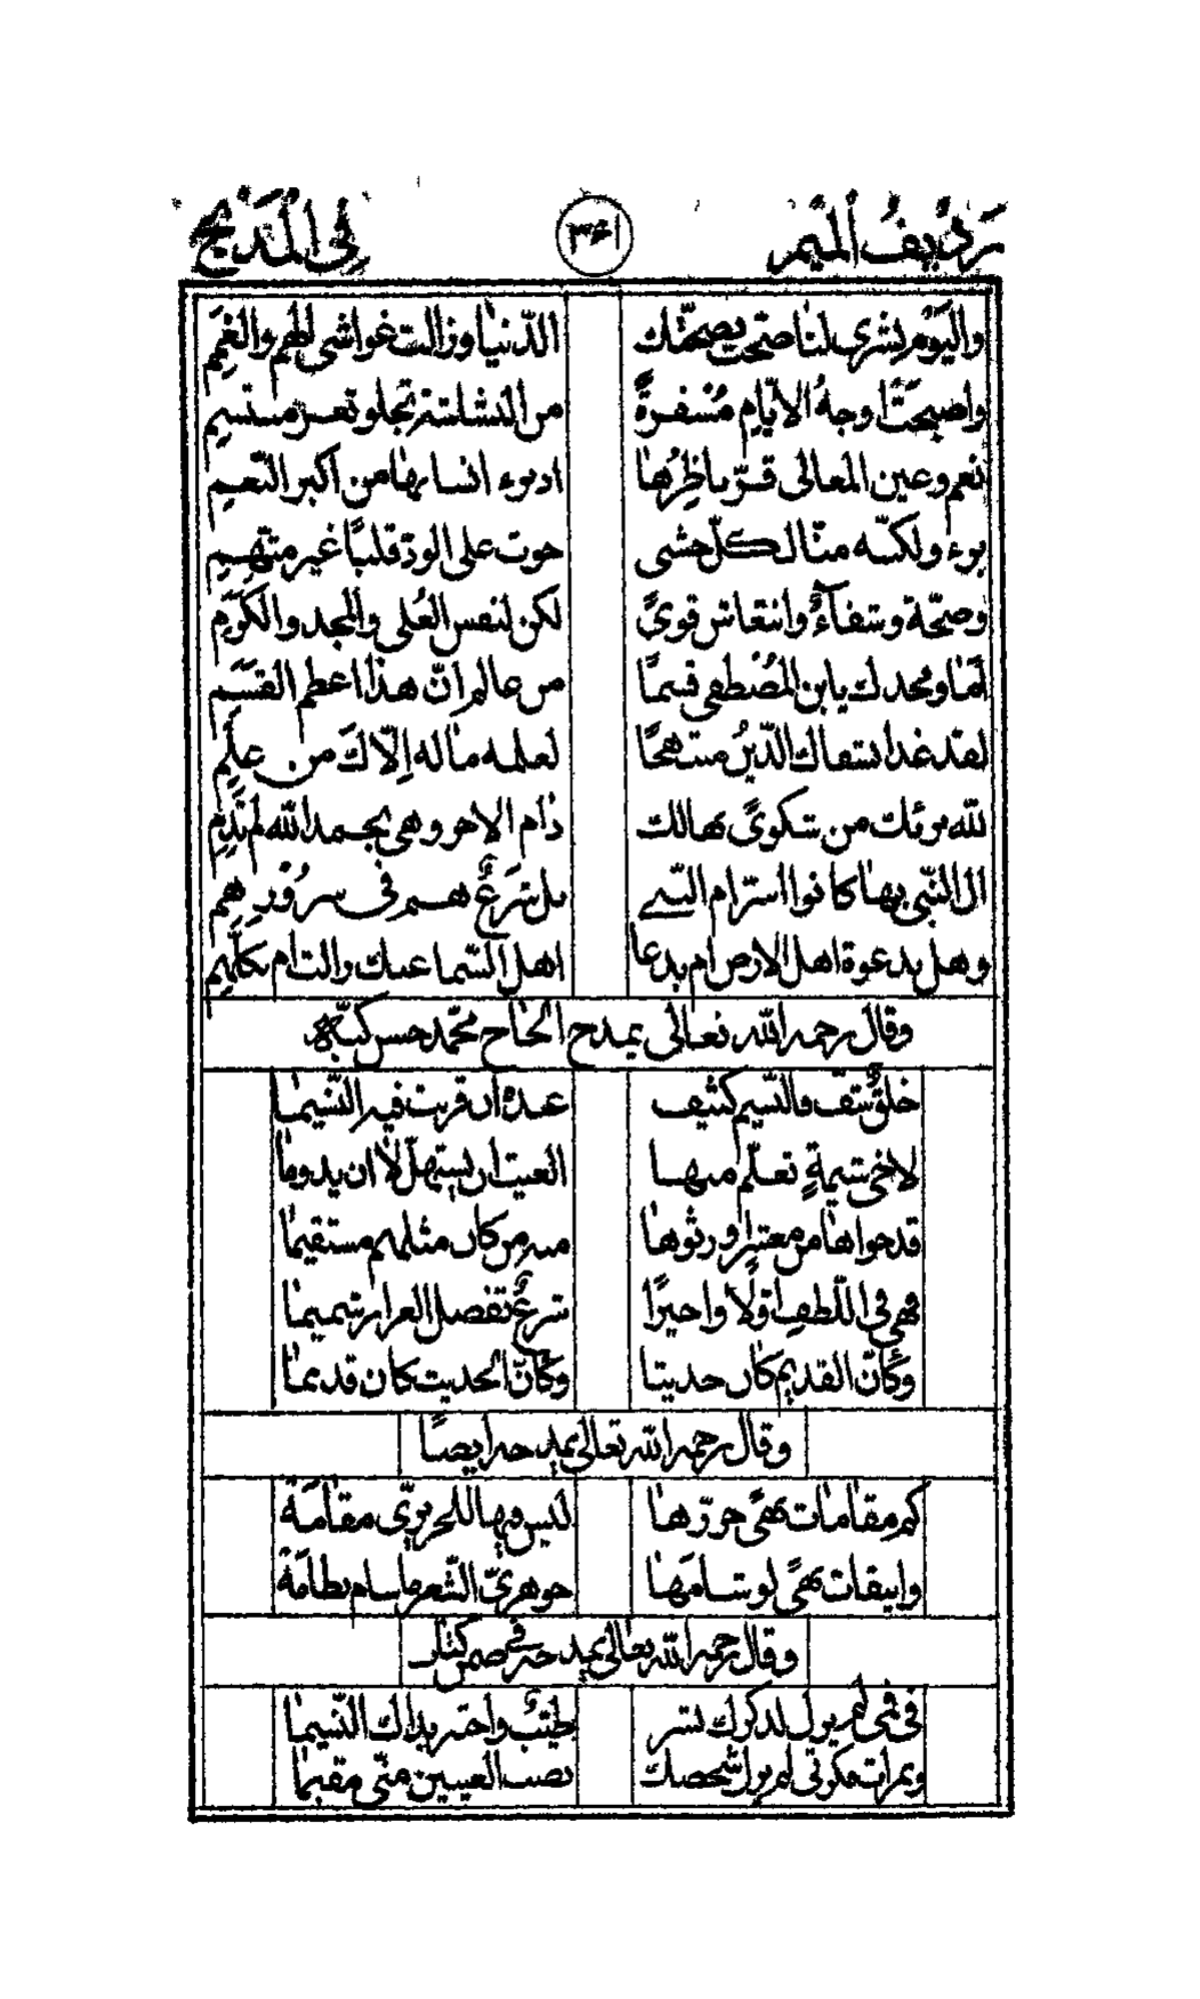 رديف الميم ٣٦١ في المديح
واليوم بشرى لنا صحت بصحتك الدنيا وزالت غواشي الهم والغمم
واصبحت اوجه الايام مسفرة من البشاشة تجلو ثغر مبتسم
نعم وعين المعالي قر ناظرها اذ برء انسانها من اكبر النعم
برء ولكنه منا لكل حشى حوت على الود قلبا غير متهم
وصحة وشفاء وانتعاش قوى لكن لنفس العلى والمجد والكرم
اما ومجدك يا بن المصطفى قسما من عالم ان هذا اعظم القسم
لقد غدا بشفاك الدين مبتهجا لعلمه ماله الاك من علم
لله برئك من شكوى بها لك دام الاجر وهي بحمد الله لم تدم
ال النبي بها كانوا اسرام النبي بل شرع هم في سرور هم
وهل بدعوة اهل الارض ام بدعا اهل السما عنك والتام بكلهم
وقال رحمه الله تعالى يمدح الحاج محمد حسن كبه
خلق شف فالنسيم كثيف عنده ان قرنت فيه النسيما
لاخي شيمة تعلم منها الغيث ان يستهل لا ان يدوما
قد حواها من معشر ورثوها منه من كان مثلهم مستقيما
فهي في اللطف اولا واخيرا شرع تفضل العرار شميما
وكأن القديم كان حديثا وكأن الحديث كان قديما
وقال رحمه الله تعالى يمدحه ايضا
كم مقامات نهى حررها ليس فيها للحريري مقامة
وانيقات نهى لو شامها جوهري الشعر ما سام نظامه
وقال رحمه الله تعالى يمدحه في ضمن كتاب
في فمي لم يزل لذكرك نشر طيب واحتر بذاك النسيما
وبمرات فكرتي لم يزل شخصك نصب العينين مني مقيما